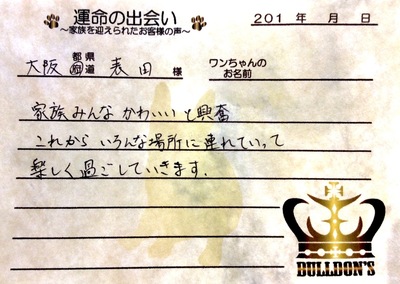 運命の出会い
～家族を迎えられたお客様の声～
201 年 月 日
大阪 都道府県 表田 様
ワンちゃんのお名前
家族みんな かわいい と興奮
これから いろんな場所に連れていって
楽しく過ごしていきます.
BULLDON'S